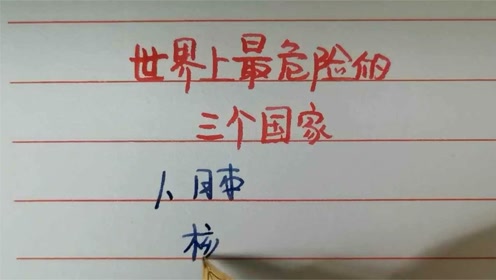 世界上最危险的
三个国家
1、日本
核